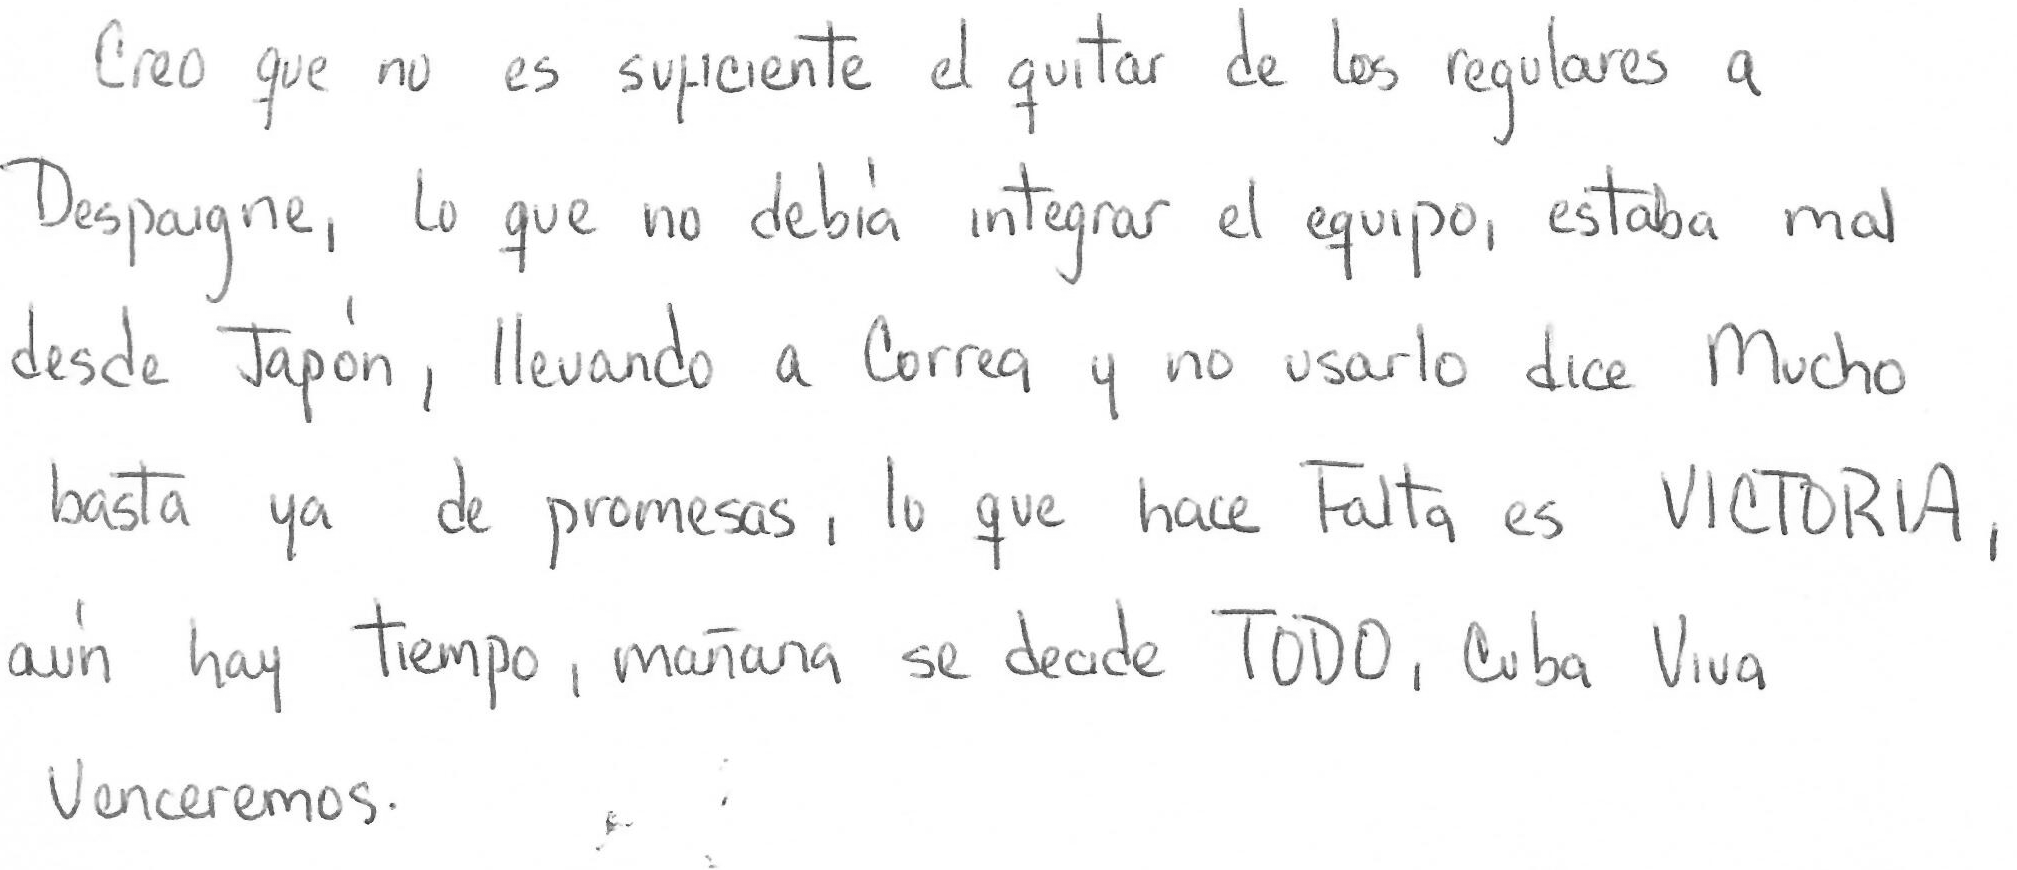 Creo que no es suficiente el quitar de los regulares a
Despaigne, lo que no debía integrar el equipo, estaba mal
desde Japón, llevando a Correa y no usarlo dice Mucho
basta ya de promesas, lo que hace Falta es VICTORIA,
aún hay tiempo, mañana se decide TODO, Cuba Viva
Venceremos.